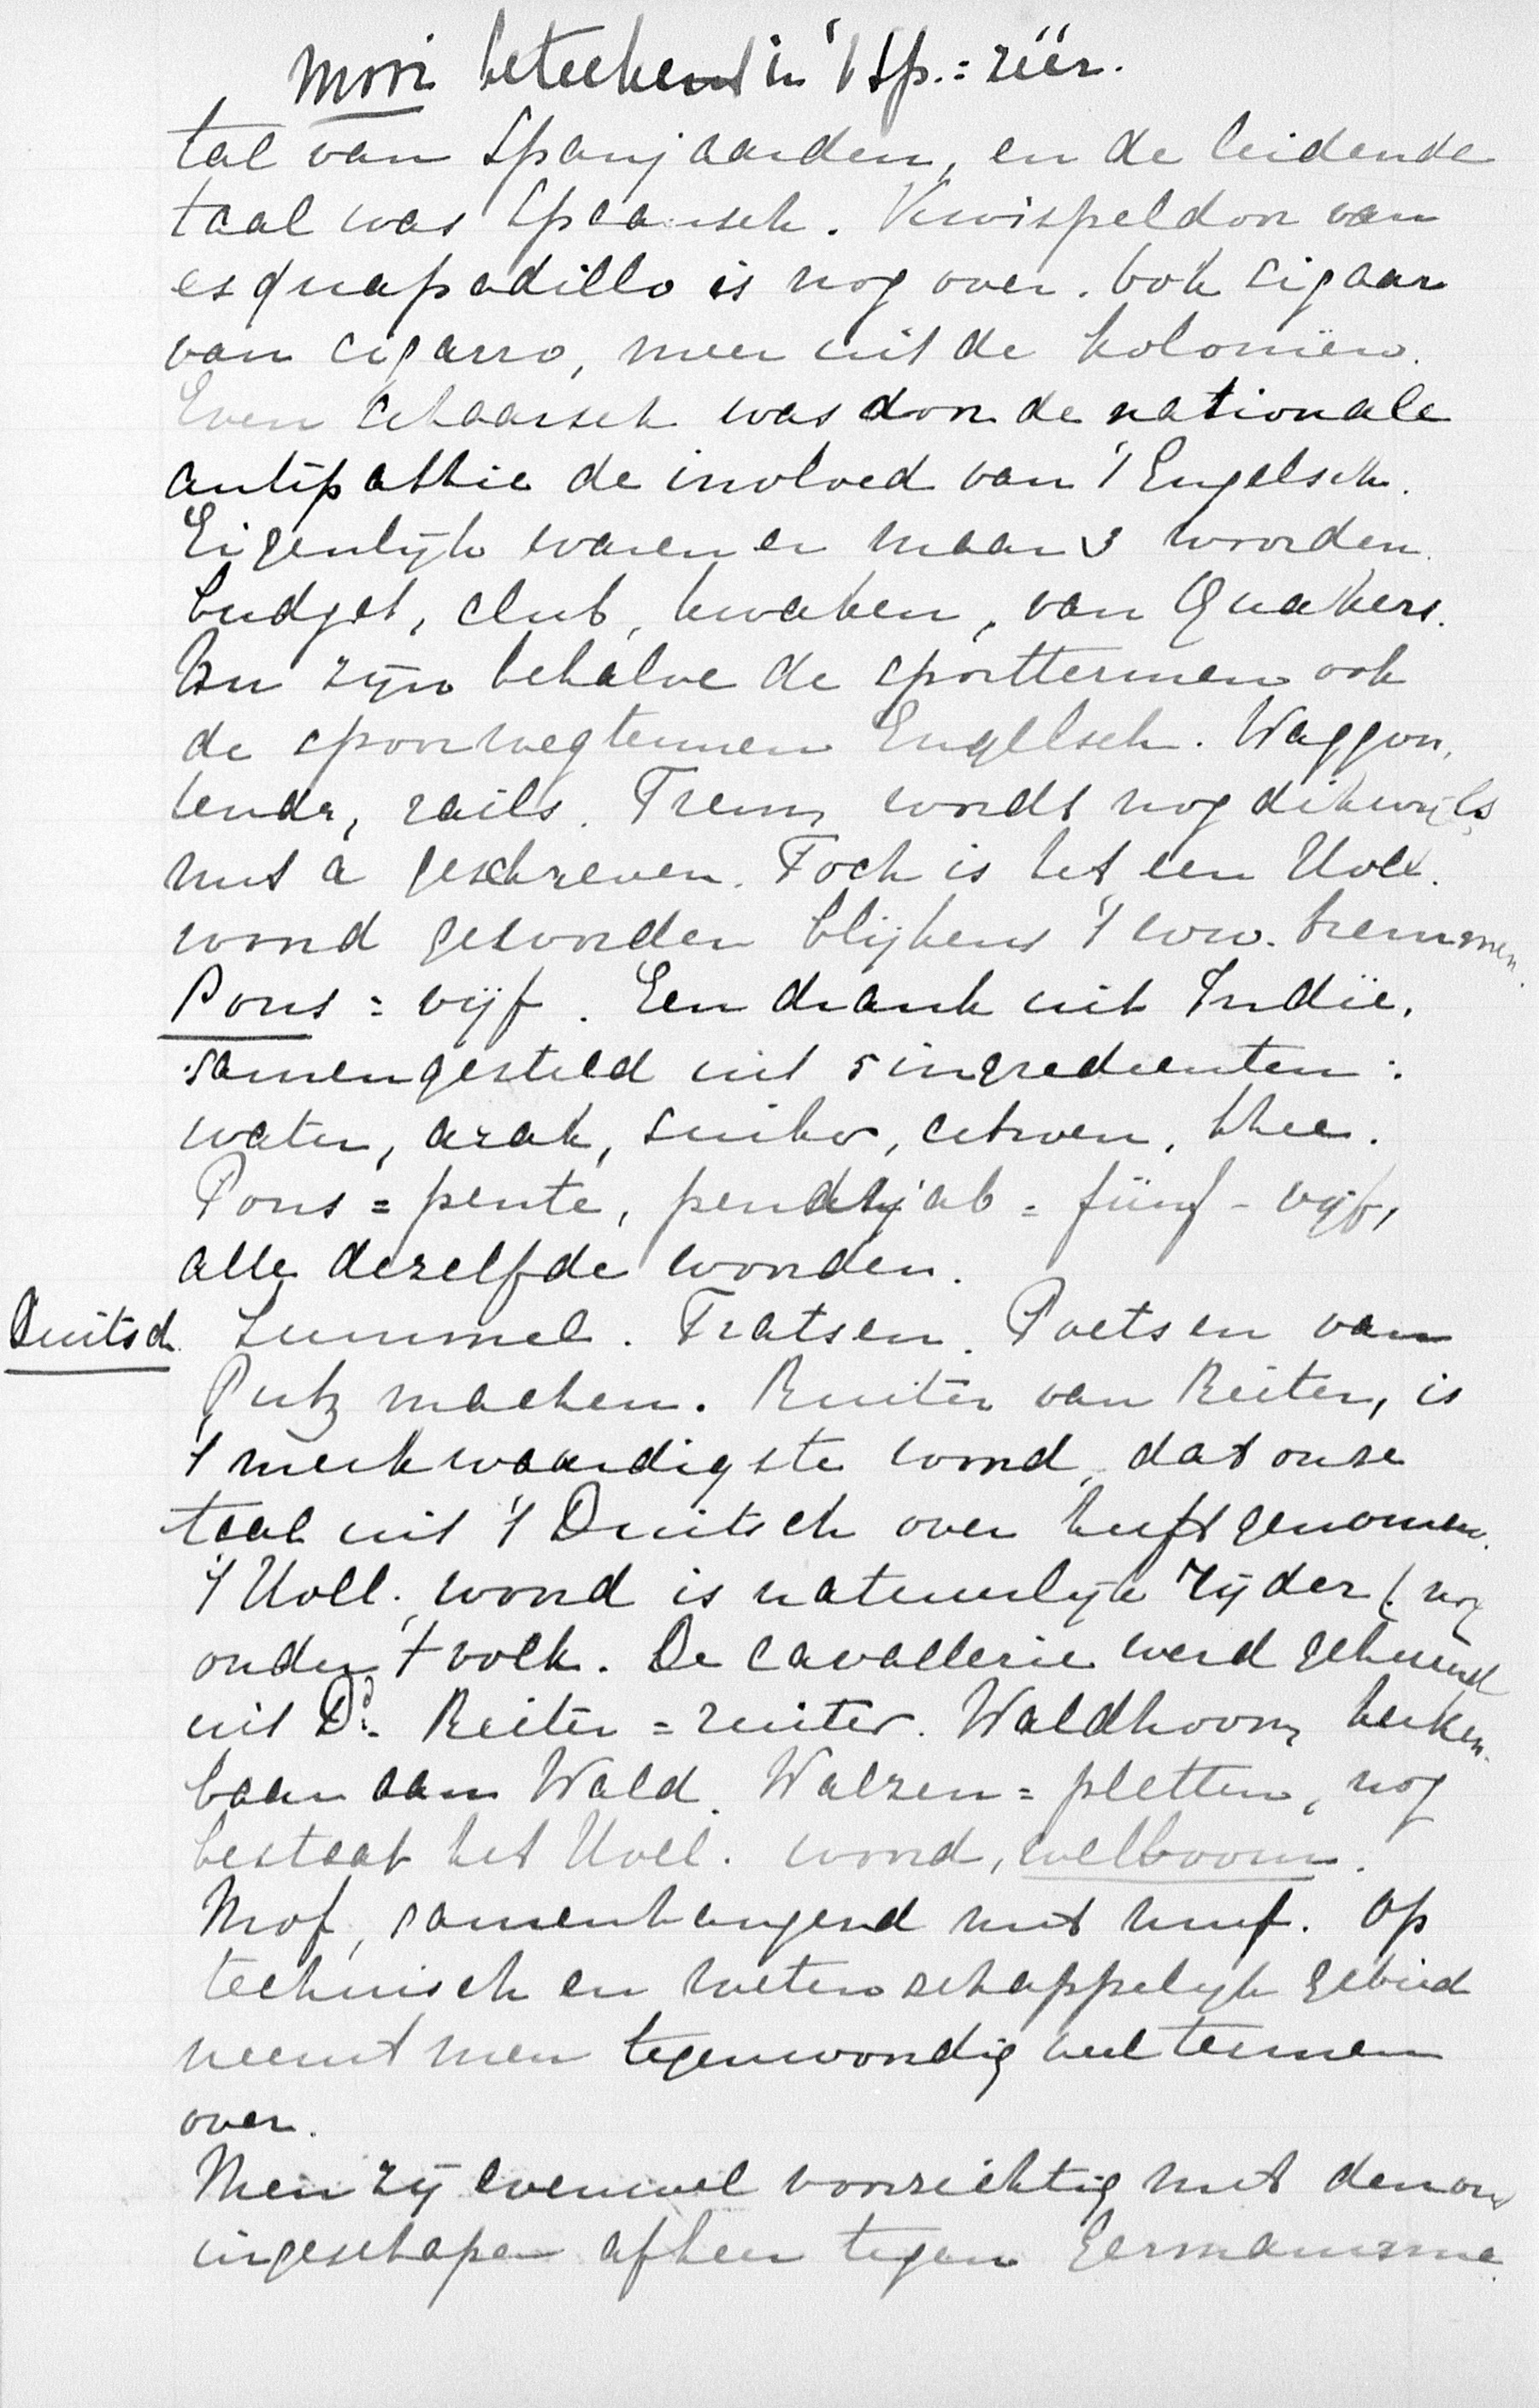 Mooi beteekent in 't Sp. = zéér.
tal van Spanjaarden, en de leidende
taal was Spaansch. Kwispeldoor van
esquapadillo is nog over. Ook sigaar
van cigarro, meer uit de koloniën.
Even schaarsch was door de nationale
antipathie de invloed van 't Engelsch.
Eigenlijk waren er maar 3 woorden.
budget, club, kwaken, van Quakers.
Nu zijn behalve de sporttermen ook
de spoorwegtermen Engelsch. Waggon,
tender, rails. Trem wordt nog dikwijls
met a geschreven. Toch is het een Holl.
woord geworden blijkens 't ww. tremmen.
Pons = vijf. Een drank uit Indië,
samengesteld uit 5 ingredienten:
water, arak, suiker, citroen, thee.
Pons = pente, pendsjab = fünf - vijf,
alle dezelfde woorden.
Duitsch. Lummel. Fratsen. Poetsen van
Putz machen. Ruiter van Reiter, is
't merkwaardigste woord, dat onze
taal uit 't Duitsch over heeft genomen.
't Holl. woord is natuurlijk rijder (nog
onder 't volk. De cavallerie werd gehuurd
uit Dd. Reiter = ruiter. Waldhoorn, herken-
baar aan Wald. Walzen = pletten, nog
bestaat het Holl. woord, welboom.
Mof, samenhangend met muf. Op
technisch en wetenschappelijk gebied
neemt men tegenwoordig veel termen
over.
Men zij evenwel voorzichtig met den ons
ingeschapen afkeer tegen Germanisme.